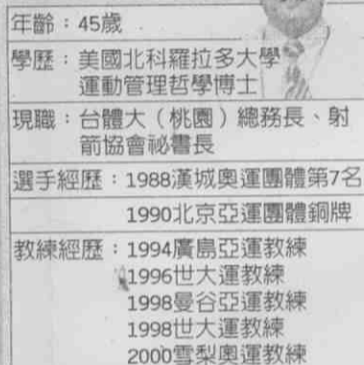 年齡：45歲
學歷：美國北科羅拉多大學
運動管理哲學博士
現職：台體大（桃園）總務長、射
箭協會祕書長
選手經歷：1988漢城奧運團體第7名
1990北京亞運團體銅牌
教練經歷：1994廣島亞運教練
1996世大運教練
1998曼谷亞運教練
1998世大運教練
2000雪梨奧運教練